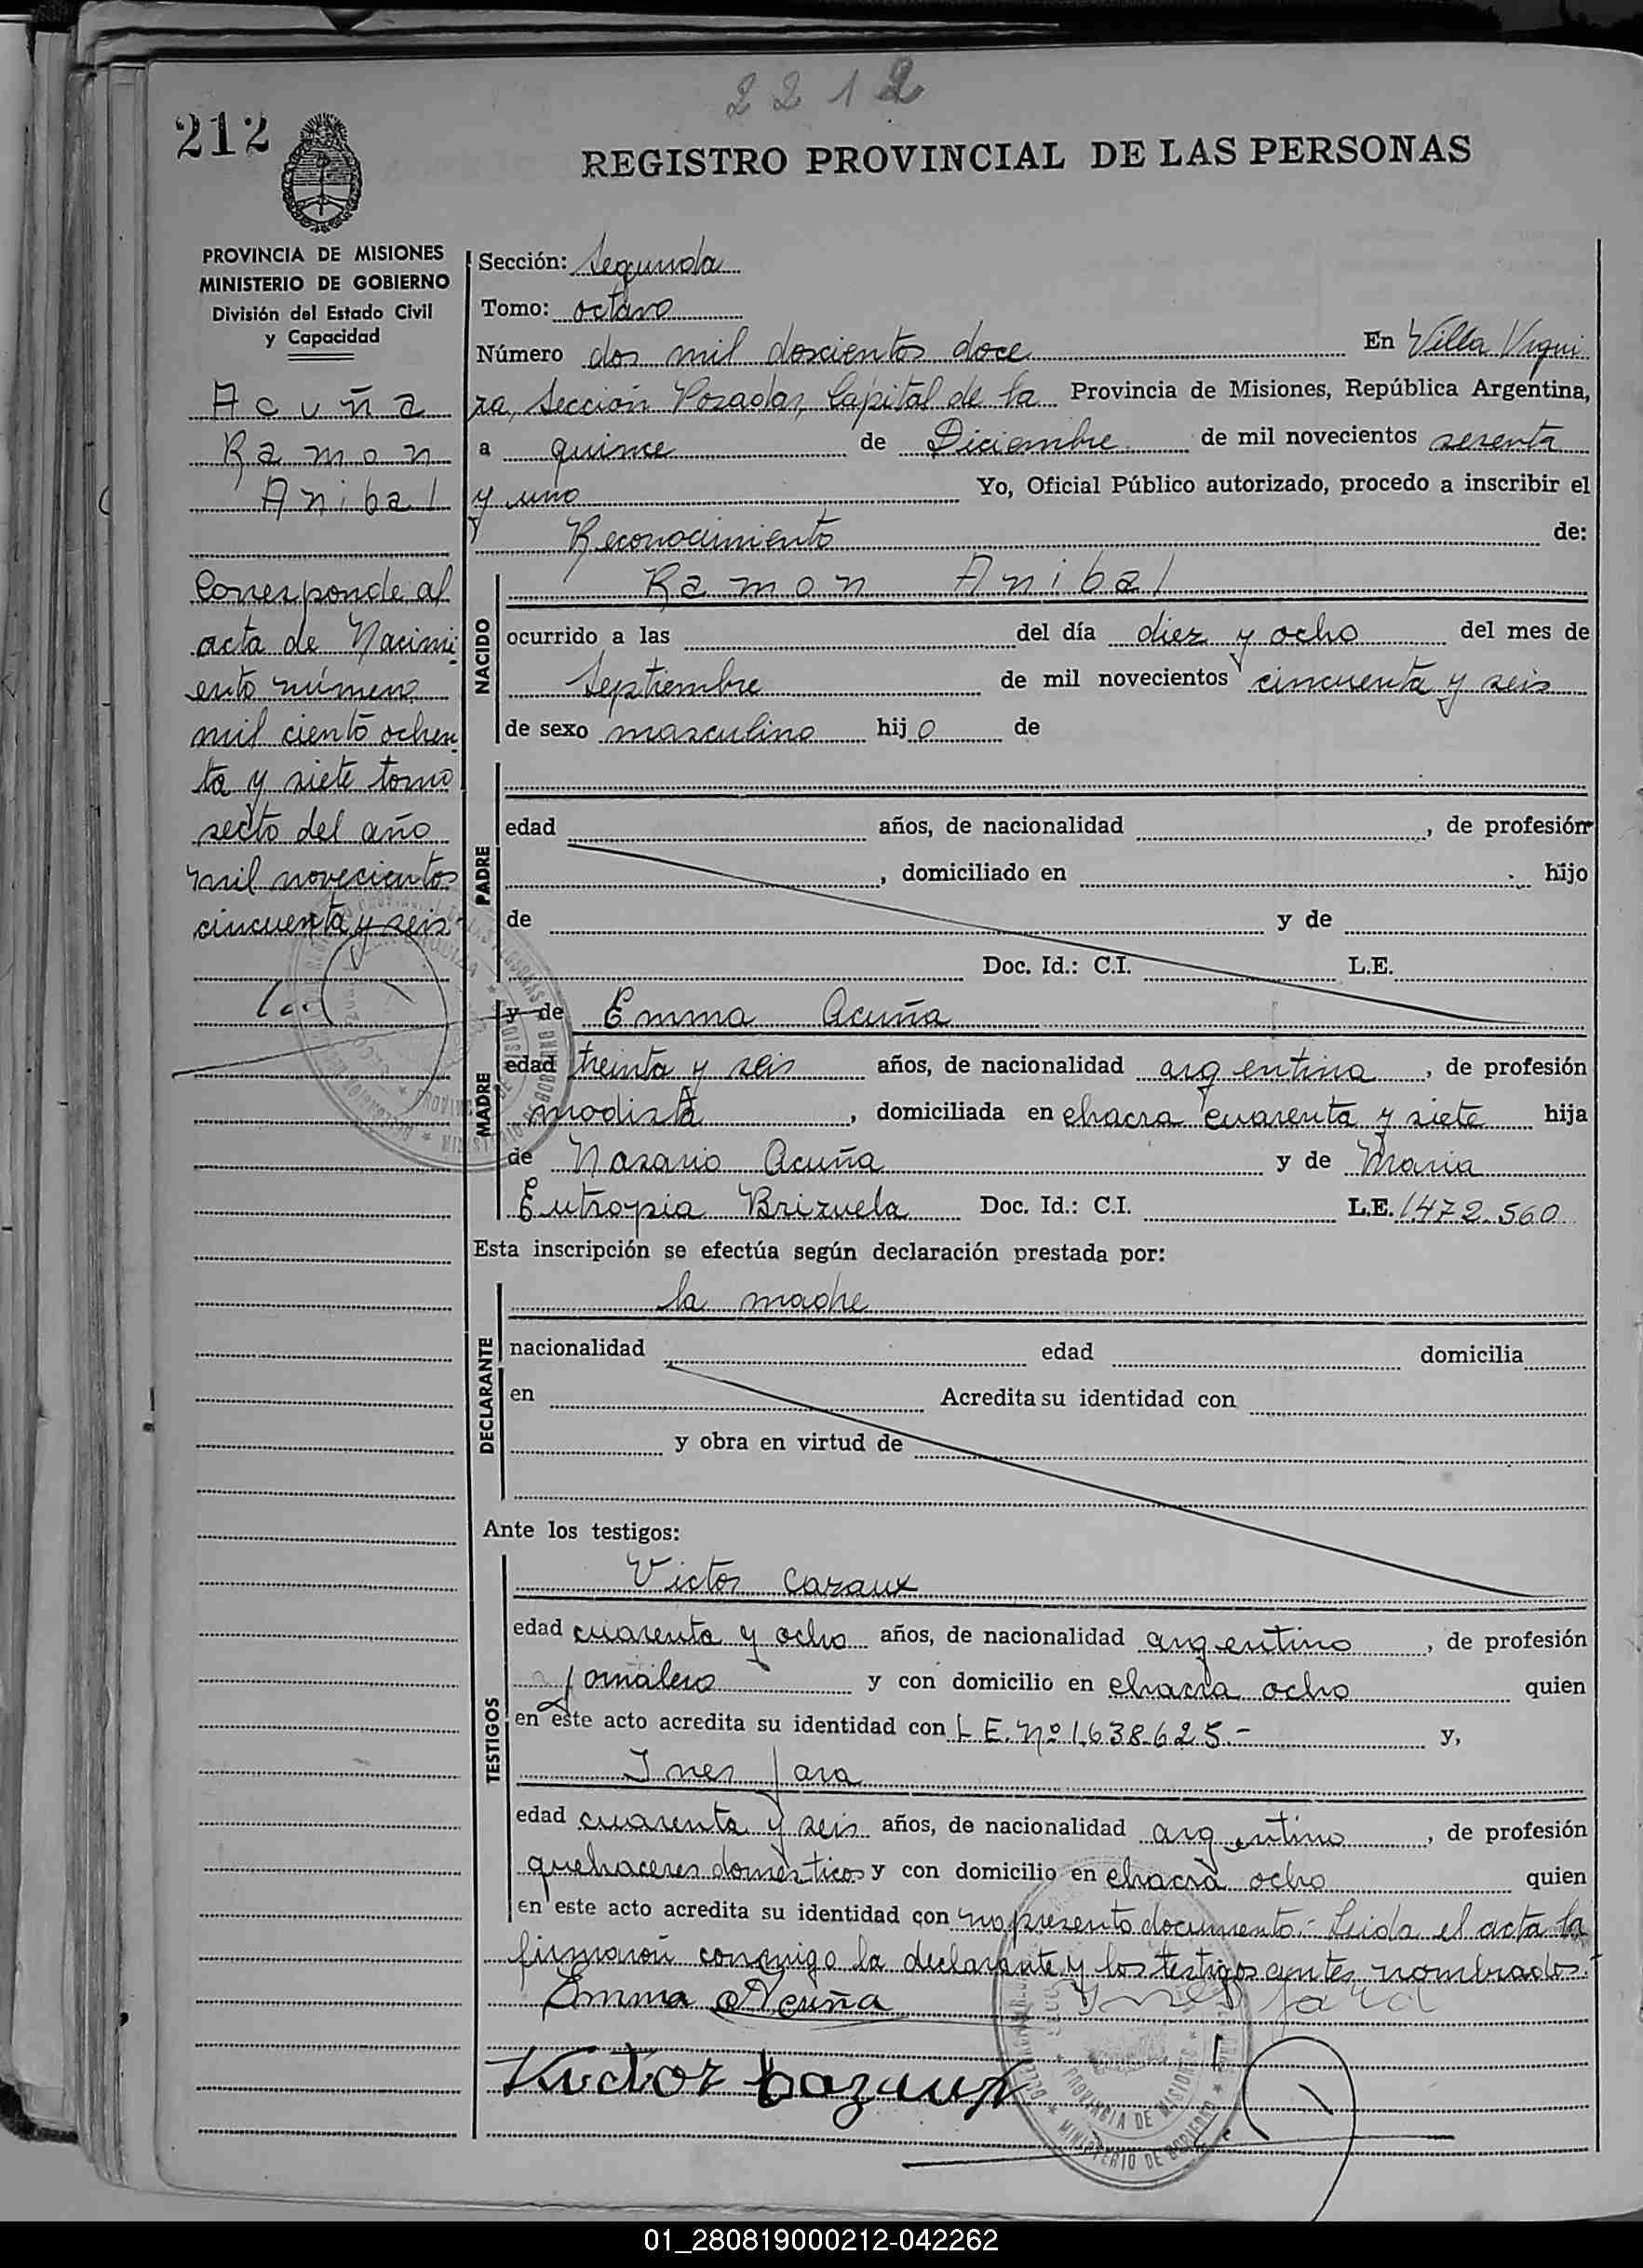 2212
212
REGISTRO PROVINCIAL DE LAS PERSONAS
PROVINCIA DE MISIONES
MINISTERIO DE GOBIERNO
División del Estado Civil
y Capacidad
Acuña
Ramon
Anibal
Corresponde al
acta de Nacimi
ento número
mil ciento ochen
ta y siete tomo
secto del año
mil novecientos
cincuenta y seis
Sección: Segunda
Tomo: octavo
Número dos mil doscientos doce En Villa Urqui
za, Sección Posadas, Capital de la Provincia de Misiones, República Argentina,
a quince de Diciembre de mil novecientos sesenta
y uno Yo, Oficial Público autorizado, procedo a inscribir el
Reconocimiento de:
NACIDO
Ramon Anibal
ocurrido a las del día diez y ocho del mes de
Septiembre de mil novecientos cincuenta y seis
de sexo masculino hijo de
PADRE
edad años, de nacionalidad , de profesión
, domiciliado en hijo
de y de
Doc. Id.: C.I. L.E.
MADRE
y de Emma Acuña
edad treinta y seis años, de nacionalidad argentina, de profesión
modista, domiciliada en chacra cuarenta y siete hija
de Nazario Acuña y de Maria
Eutropia Brizuela Doc. Id.: C.I. L.E. 1.472.560
Esta inscripción se efectúa según declaración prestada por:
DECLARANTE
la madre
nacionalidad edad domicilia
en Acredita su identidad con
y obra en virtud de
Ante los testigos:
TESTIGOS
Victor Cazaux
edad cuarenta y ocho años, de nacionalidad argentino, de profesión
jornalero y con domicilio en chacra ocho quien
en este acto acredita su identidad con L.E. Nº 1.638.625.- y,
Ines Jara
edad cuarenta y seis años, de nacionalidad argentino, de profesión
quehaceres domésticos y con domicilio en chacra ocho quien
en este acto acredita su identidad con no presento documento.- Leida el acta la
firmaron conmigo la declarante y los testigos antes nombrados.
Emma Acuña Ines Jara
Victor Cazaux
PROVINCIA DE MISIONES
MINISTERIO DE GOBIERNO
01_280819000212-042262